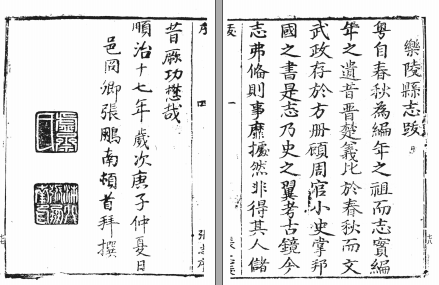 樂陵縣志跋
粵自春秋為編年之祖而志實編
年之遺昔晉楚義比於春秋而文
武政存於方冊顧周官小史掌邦
國之書是志乃史之翼考古鏡今
志弗脩則事靡攄然非得其人儲
跋 一
序 四
昔厥功懋哉
順治十七年歲次庚子仲夏日
邑岡卿張鵬南頓首拜撰